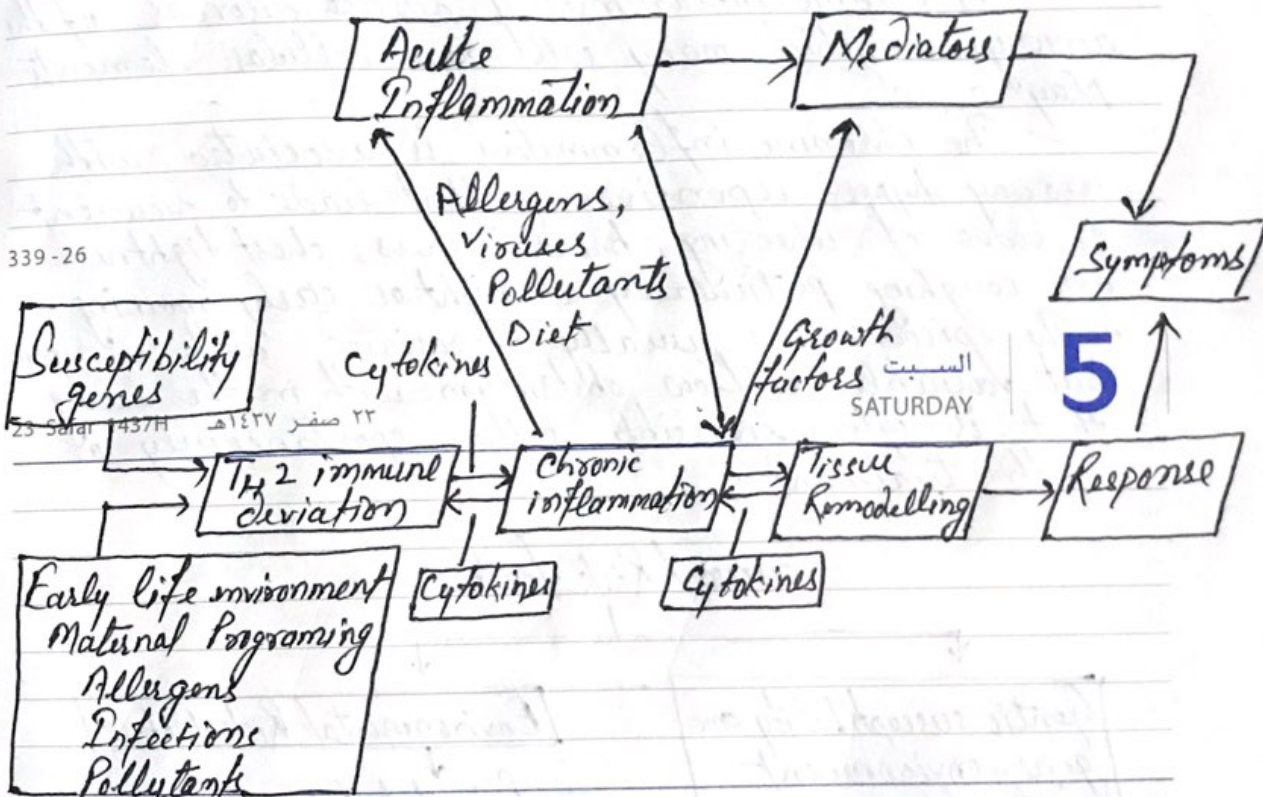 Acute
Inflammation
Mediators
Allergens,
Viruses
Pollutants
Diet
Symptoms
339-26
Susceptibility
genes
Cytokines
Growth
factors
السبت
SATURDAY
5
23 Safar 1437H ٢٣ صفر ١٤٣٧هـ
TH2 immune
deviation
Chronic
inflammation
Tissue
Remodelling
Response
Early life environment
Maternal Programing
Allergens
Infections
Pollutants
Cytokines
Cytokines